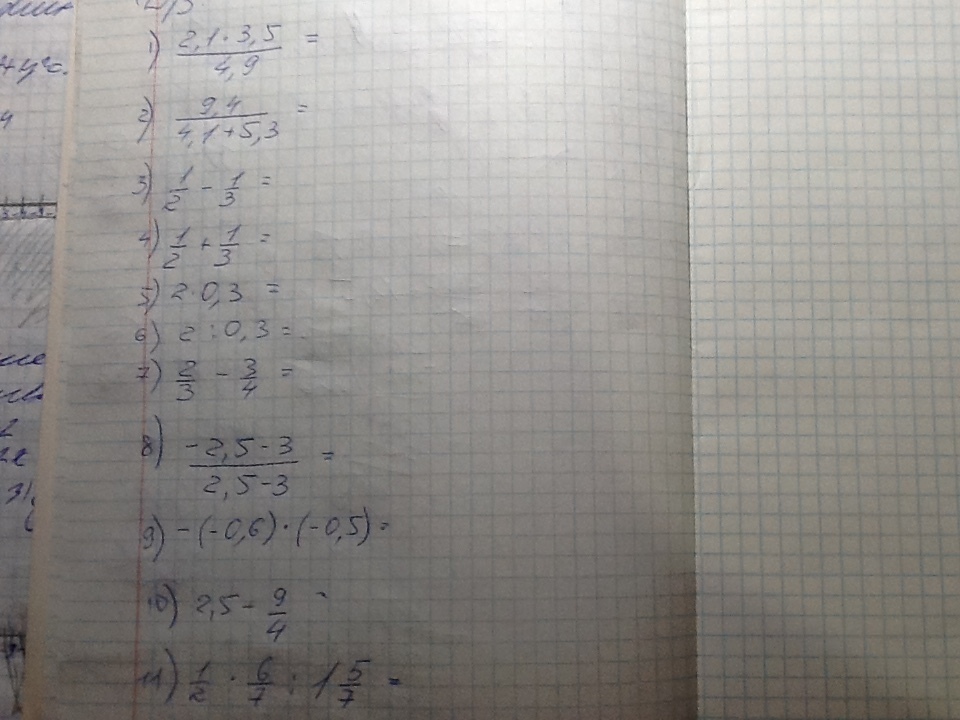 1) 2,1 · 3,5 / 4,9 =
2) 9,4 / 4,1+5,3 =
3) 1/2 - 1/3 =
4) 1/2 + 1/3 =
5) 2·0,3 =
6) 2:0,3 =
7) 2/3 - 3/4 =
8) -2,5-3 / 2,5-3 =
9) -(-0,6)·(-0,5)=
10) 2,5 - 9/4 -
11) 1/2 · 6/7 : 1 5/7 =